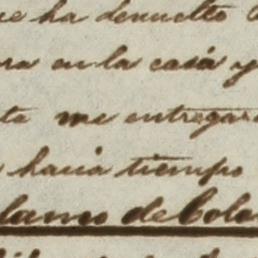 ue ha devuelto
ra en la casa y
te me entregar
hacia tiempo
lamo de Cola